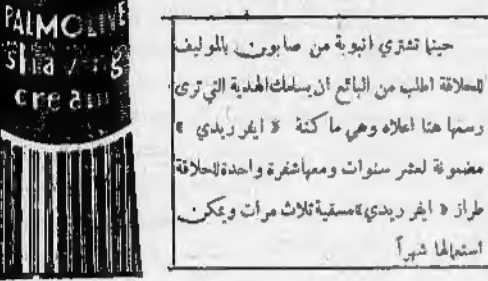 PALMOLIVE
Shaving
cream
حينما تشتري انبوبة من صابون بالموليف
للحلاقة اطلب من البائع ان يسلمك الهدية التي ترى
رسمها هنا اعلاه وهي ماكنة « ايفر ريدي »
مضمونة لعشر سنوات ومعها شفرة واحدة للحلاقة
طراز « ايفر ريدي » مسقية ثلاث مرات ويمكن
استعمالها شهراً